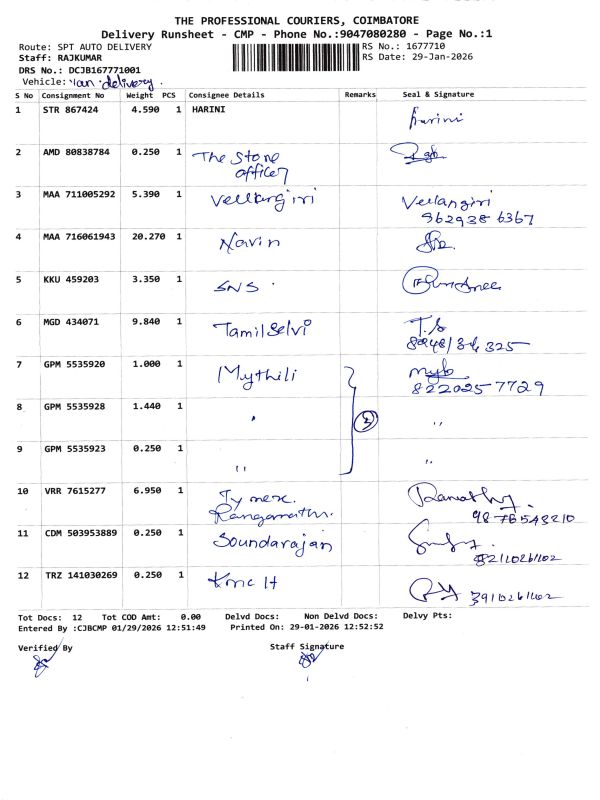 THE PROFESSIONAL COURIERS, COIMBATORE
Delivery Runsheet - CMP - Phone No.:9047080280 - Page No.:1
Route: SPT AUTO DELIVERY RS No.: 1677710
Staff: RAJKUMAR RS Date: 29-Jan-2026
DRS No.: DCJB167771001
Vehicle: Van delivery
S No Consignment No Weight PCS Consignee Details Remarks Seal & Signature
1 STR 867424 4.590 1 HARINI Harini
2 AMD 80838784 0.250 1 The Stone
office
3 MAA 711005292 5.390 1 Vellangiri Vellangiri
9629386367
4 MAA 716061943 20.270 1 Navin
5 KKU 459203 3.350 1 SNS
6 MGD 434071 9.840 1 Tamilselvi T.S
7 GPM 5535920 1.000 1 Mythili
8220257729
8 GPM 5535928 1.440 1 "
9 GPM 5535923 0.250 1 " "
10 VRR 7615277 6.950 1
Ranganathn.
9876543210
11 CDM 503953889 0.250 1 Soundarajan
12 TRZ 141030269 0.250 1 Kmc H
Tot Docs: 12 Tot COD Amt: 0.00 Delvd Docs: Non Delvd Docs: Delvy Pts:
Entered By :CJBCMP 01/29/2026 12:51:49 Printed On: 29-01-2026 12:52:52
Verified By Staff Signature